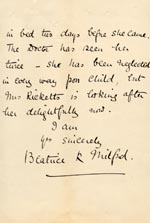 in bed two days before she came.
The Doctor has seen her
twice - she has been neglected
in every way poor child, but
Mrs Ricketts is looking after
her delightfully now.
I am
Yrs sincerely
Beatrice R Milford.